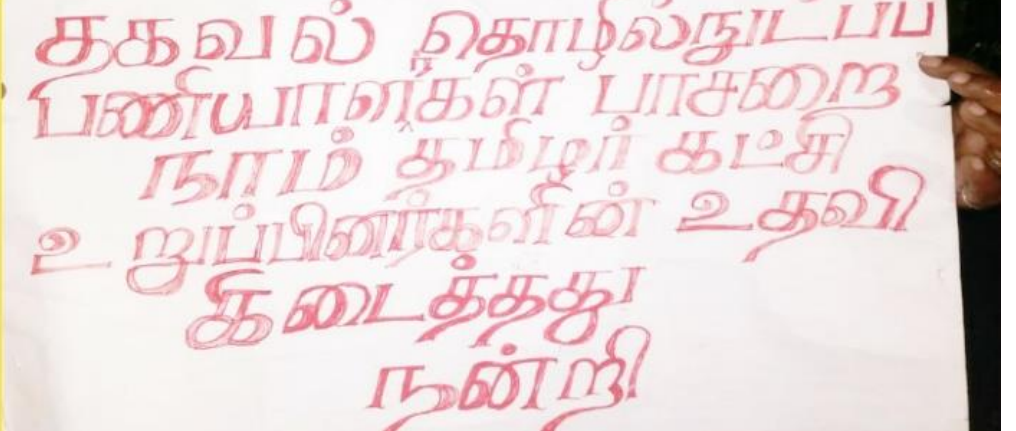 தகவல் தொழில்நுட்பப்
பணியாளர்கள் பாசறை
நாம் தமிழர் கட்சி
உறுப்பினர்களின் உதவி
கிடைத்தது
நன்றி